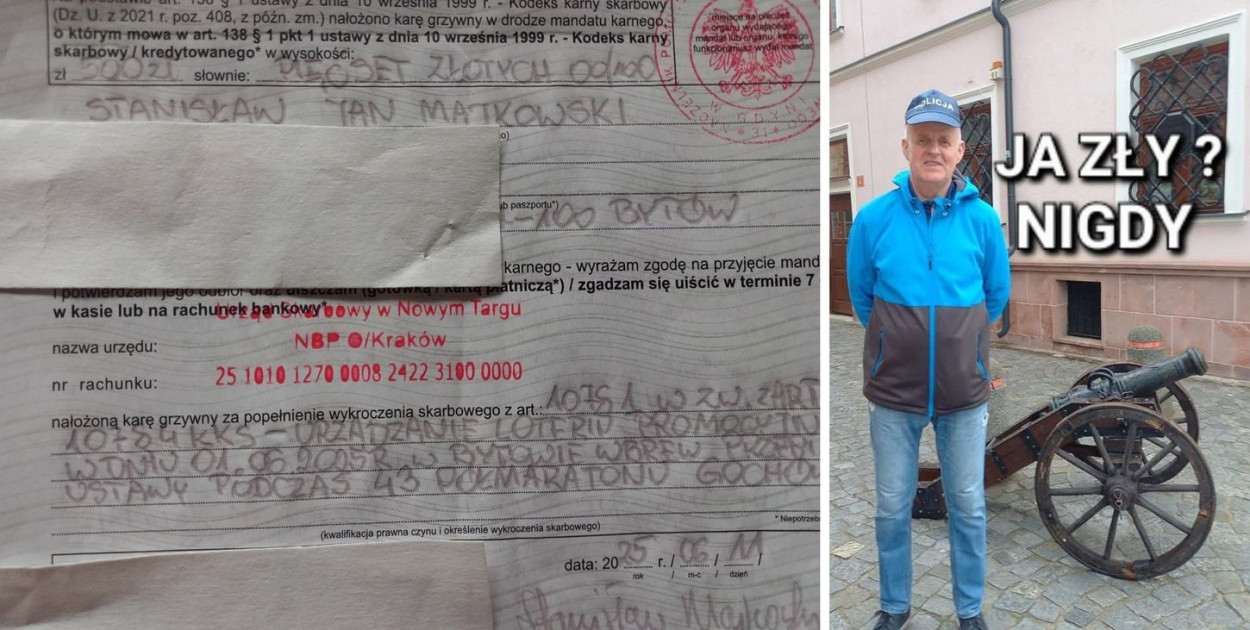 (Dz. U. z 2021 r. poz. 408, z późn. zm.) nałożono karę grzywny w drodze mandatu karnego,
o którym mowa w art. 138 § 1 pkt 1 ustawy z dnia 10 września 1999 r. - Kodeks karny
skarbowy / kredytowanego* w wysokości:
zł 500zł słownie: PIĘĆSET ZŁOTYCH 00/100
STANISŁAW JAN MAJKOWSKI
ub paszportu*)
-100 BYTÓW
karnego - wyrażam zgodę na przyjęcie mand
i potwierdzam jego odbiór oraz uiszczam (gotówką i kartą płatniczą*) / zgadzam się uiścić w terminie 7
w kasie lub na rachunek bankowy*
Urząd Skarbowy w Nowym Targu
nazwa urzędu: NBP O/Kraków
nr rachunku: 25 1010 1270 0008 2422 3100 0000
nałożoną karę grzywny za popełnienie wykroczenia skarbowego z art.: 107§1 W ZW. Z ART
107§4 KKS - URZĄDZANIE LOTERII PROMOCYJN
W DNIU 01.06.2025R. W BYTOWIE WBREW PRZEPI
USTAWY PODCZAS 43 PÓŁMARATONU GOCHÓ
* Niepotrzeb
(kwalifikacja prawna czynu i określenie wykroczenia skarbowego)
data: 2025 r. / 06 / 11 /
rok / m-c / dzień
Stanisław Majkowski
miejsce na pieczęć
organu wydającego
mandat lub organu, którego
funkcjonariusz wydał mandat
POLICJA
JA ZŁY ?
NIGDY